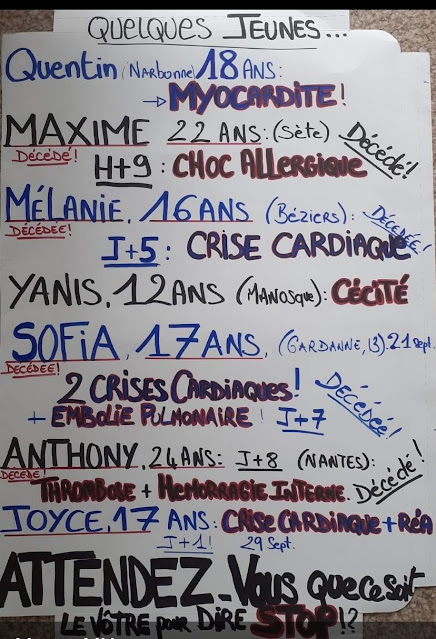 QUELQUES JEUNES...
Quentin (Narbonne) 18 ANS:
→ MYOCARDITE!
MAXIME 22 ANS: (Sète) Décédé!
DÉCÉDÉ!
H+9: CHOC ALLERGIQUE
MÉLANIE, 16 ANS (Béziers): DÉCÉDÉE!
DÉCÉDEE!
J+5: CRISE CARDIAQUE
YANIS, 12 ANS (MANOSQUE): CÉCITÉ
SOFIA, 17 ANS, (GARDANNE, 13). 21 Sept.
DÉCÉDEE!
2 CRISES CARDIAQUES! DÉCÉDÉE!
+ EMBOLIE PULMONAIRE! J+7
ANTHONY, 24 ANS: J+8 (NANTES):
DECEDE! Décédé!
THROMBOSE + HEMORRAGIE INTERNE.
JOYCE, 17 ANS: CRISE CARDIAQUE + RÉA
J+1! 29 Sept.
ATTENDEZ-Vous que ce soit
LE VÔTRE pour DIRE STOP!?